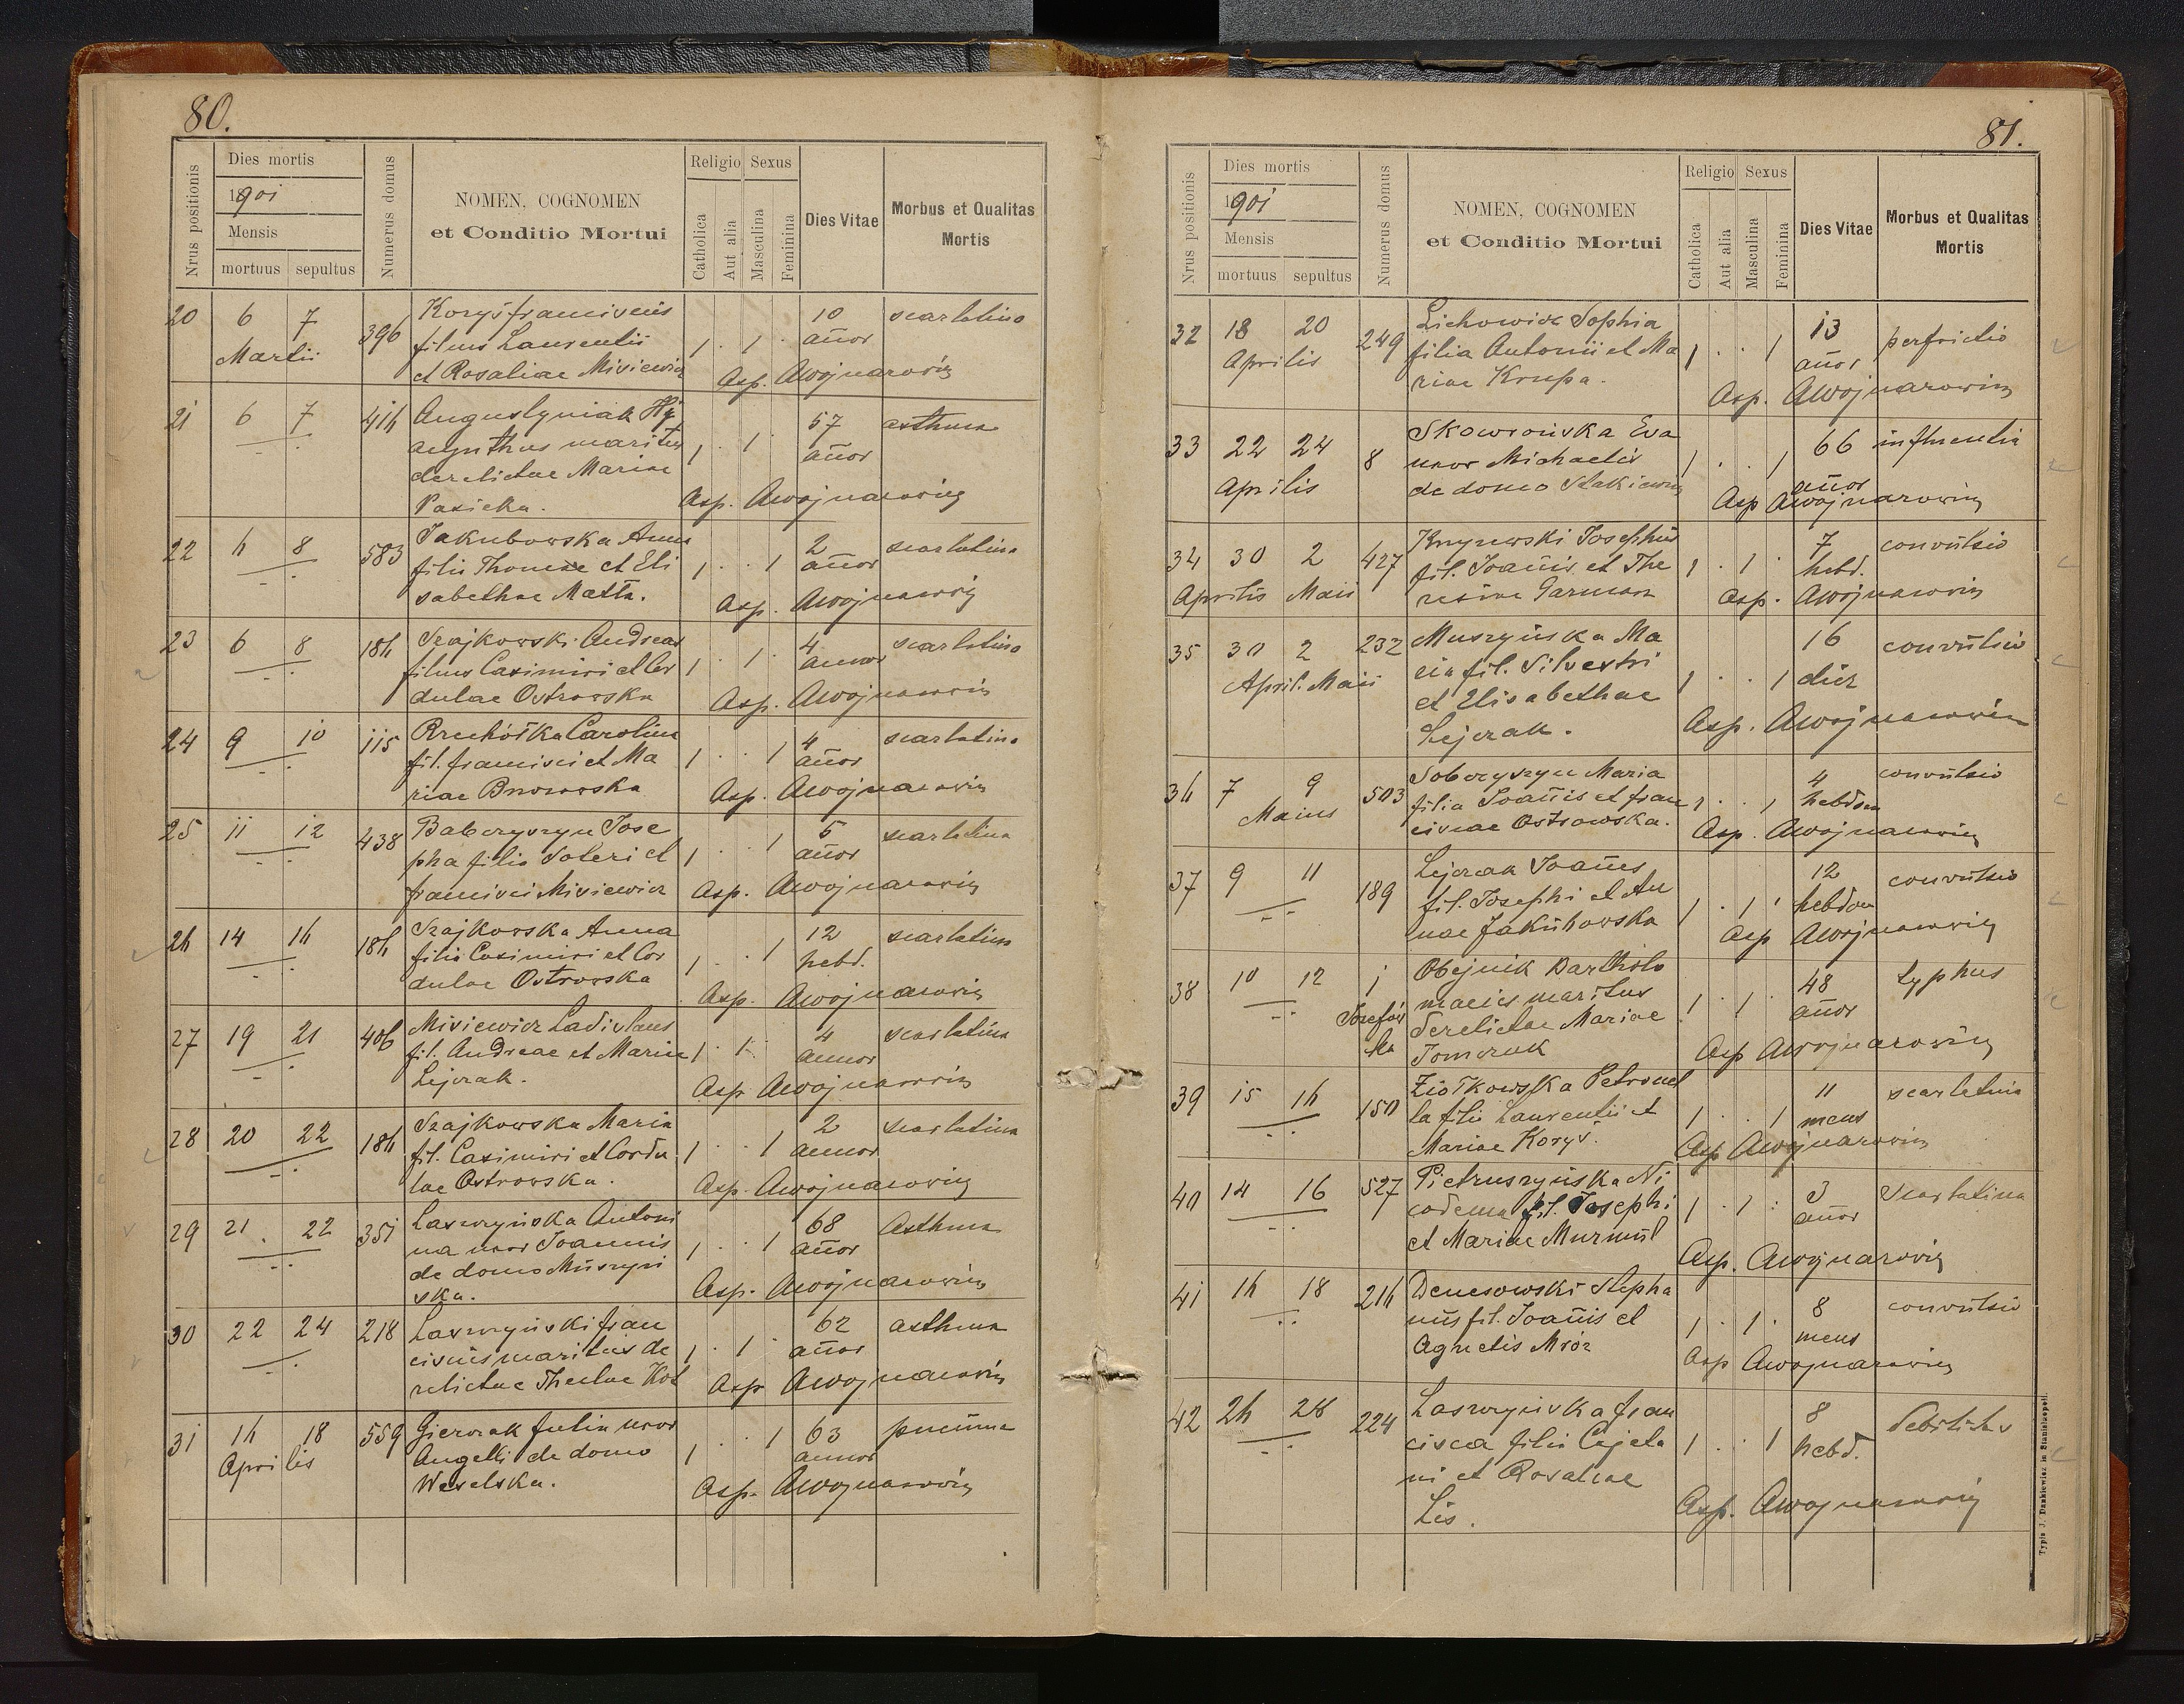 80.
Nrus positionis
Dies mortis
1901
Mensis
mortuus sepultus
Numerus domus
NOMEN, COGNOMEN
et Conditio Mortui
Religio Sexus
Catholica
Aut alia
Masculina
Feminina
Dies Vitae
Morbus et Qualitas
Mortis
20 6 7 Martii 396
Koryś franciscus
filius Laurentii
et Rosaliae Misiewicz
1 . 1 . 10 añor scarlatina
Asp.
21 6 7 416
Augustyniak Hy
acynthus maritus
derelictae Mariae
Pasieka.
1 . 1 . 57 añor asthma
Asp.
22 6 8 583
Jakubowska Anna
filia Thomae et Eli
sabethae Matta.
1 . . 1 2 añor scarlatina
Asp.
23 6 8 186
Szajkowski Andreas
filius Casimiri et Cor
dulae Ostrowska
1 . 1 . 4 annor scarlatina
Asp.
24 9 10 115
Carolina
fil. francisci et Ma
riae
1 . . 1 4 añor scarlatina
Asp.
25 11 12 438
Babczyszyn Jose
pha filia Soteri et
francisci Misiewicz
1 . . 1 5 añor scarlatina
Asp.
26 14 16 186
Szajkowska Anna
filia Casimiri et Cor
dulae Ostrowska
1 . . 1 12 hebd. scarlatina
Asp.
27 19 21 406
Misiewicz Ladislaus
fil. Andreae et Mariae
Lejczak.
1 . 1 . 4 annor scarlatina
Asp
28 20 22 186
Szajkowska Maria
fil. Casimiri et Cordu
lae Ostrowska.
1 . . 1 2 annor scarlatina
Asp.
29 21 22 351
Laszczyńska Antoni
na uxor Joannis
de domo Muszyń
ska.
1 . . 1 68 añor Asthma
Asp.
30 22 24 218
Laszczyński fran
ciscus maritus de
relictae Theclae Kot
1 . 1 . 62 añor asthma
Asp
31 16 18 Aprilis 559
Gierczak Julia uxor
Angelli de domo
Weselska.
1 . . 1 63 annor
Asp.
81.
Nrus positionis
Dies mortis
1901
Mensis
mortuus sepultus
Numerus domus
NOMEN, COGNOMEN
et Conditio Mortui
Religio Sexus
Catholica
Aut alia
Masculina
Feminina
Dies Vitae
Morbus et Qualitas
Mortis
32 18 20 Aprilis 249
Lichowicz Sophia
filia Antonii et Ma
riae Krupa.
1 . . 1 13 añor perfrictio
Asp.
33 22 24 Aprilis 8
Skowrońska Eva
uxor Michaelis
de domo
1 . . 1 66 añor influentia
Asp
34 30 2 Aprilis Maii 427
Josephus
fil. Joañis et The
resiae
1 . 1 . 7 hebd. convulsio
Asp.
35 30 2 April. Maii 232
Muszyńska Ma
ria fil. Silvestri
et Elisabethae
Lejczak.
1 . . 1 16 dier convulsio
Asp.
36 7 9 Maius 503
Sobczyszyn Maria
filia Joañis et fran
ciscae Ostrowska.
1 . . 1 4 hebdom convulsio
Asp.
37 9 11 189
Lejczak Joañes
fil. Josephi et An
nae Jakubowska
1 . 1 . 12 hebdom convulsio
Asp
38 10 12 1 Józefów
ka
Obejnik Bartholo
maeus maritus
derelictae Mariae
Tomczuk
1 . 1 . 48 añor typhus
Asp
39 15 16 150
Ziółkowska Petronel
la filia Laurentii et
Mariae Koryś.
1 . . 1 11 mens scarlatina
Asp
40 14 16 527
Pietruszyńska Ni
codema fil. Josephi
et Mariae Murmil
1 . 1 . 3 añor scarlatina
Asp.
41 16 18 216
Denesowski Stepha
nus fil. Joañis et
Agnetis Mróz
1 . 1 . 8 mens convulsio
Asp
42 26 28 224
Laszczyńska fran
cisca filia Cajeta
ni et Rosaliae
Lis.
1 . . 1 8 hebd. debilitas
Asp.
Typis J. Dankiewicz in Stanislaopoli.